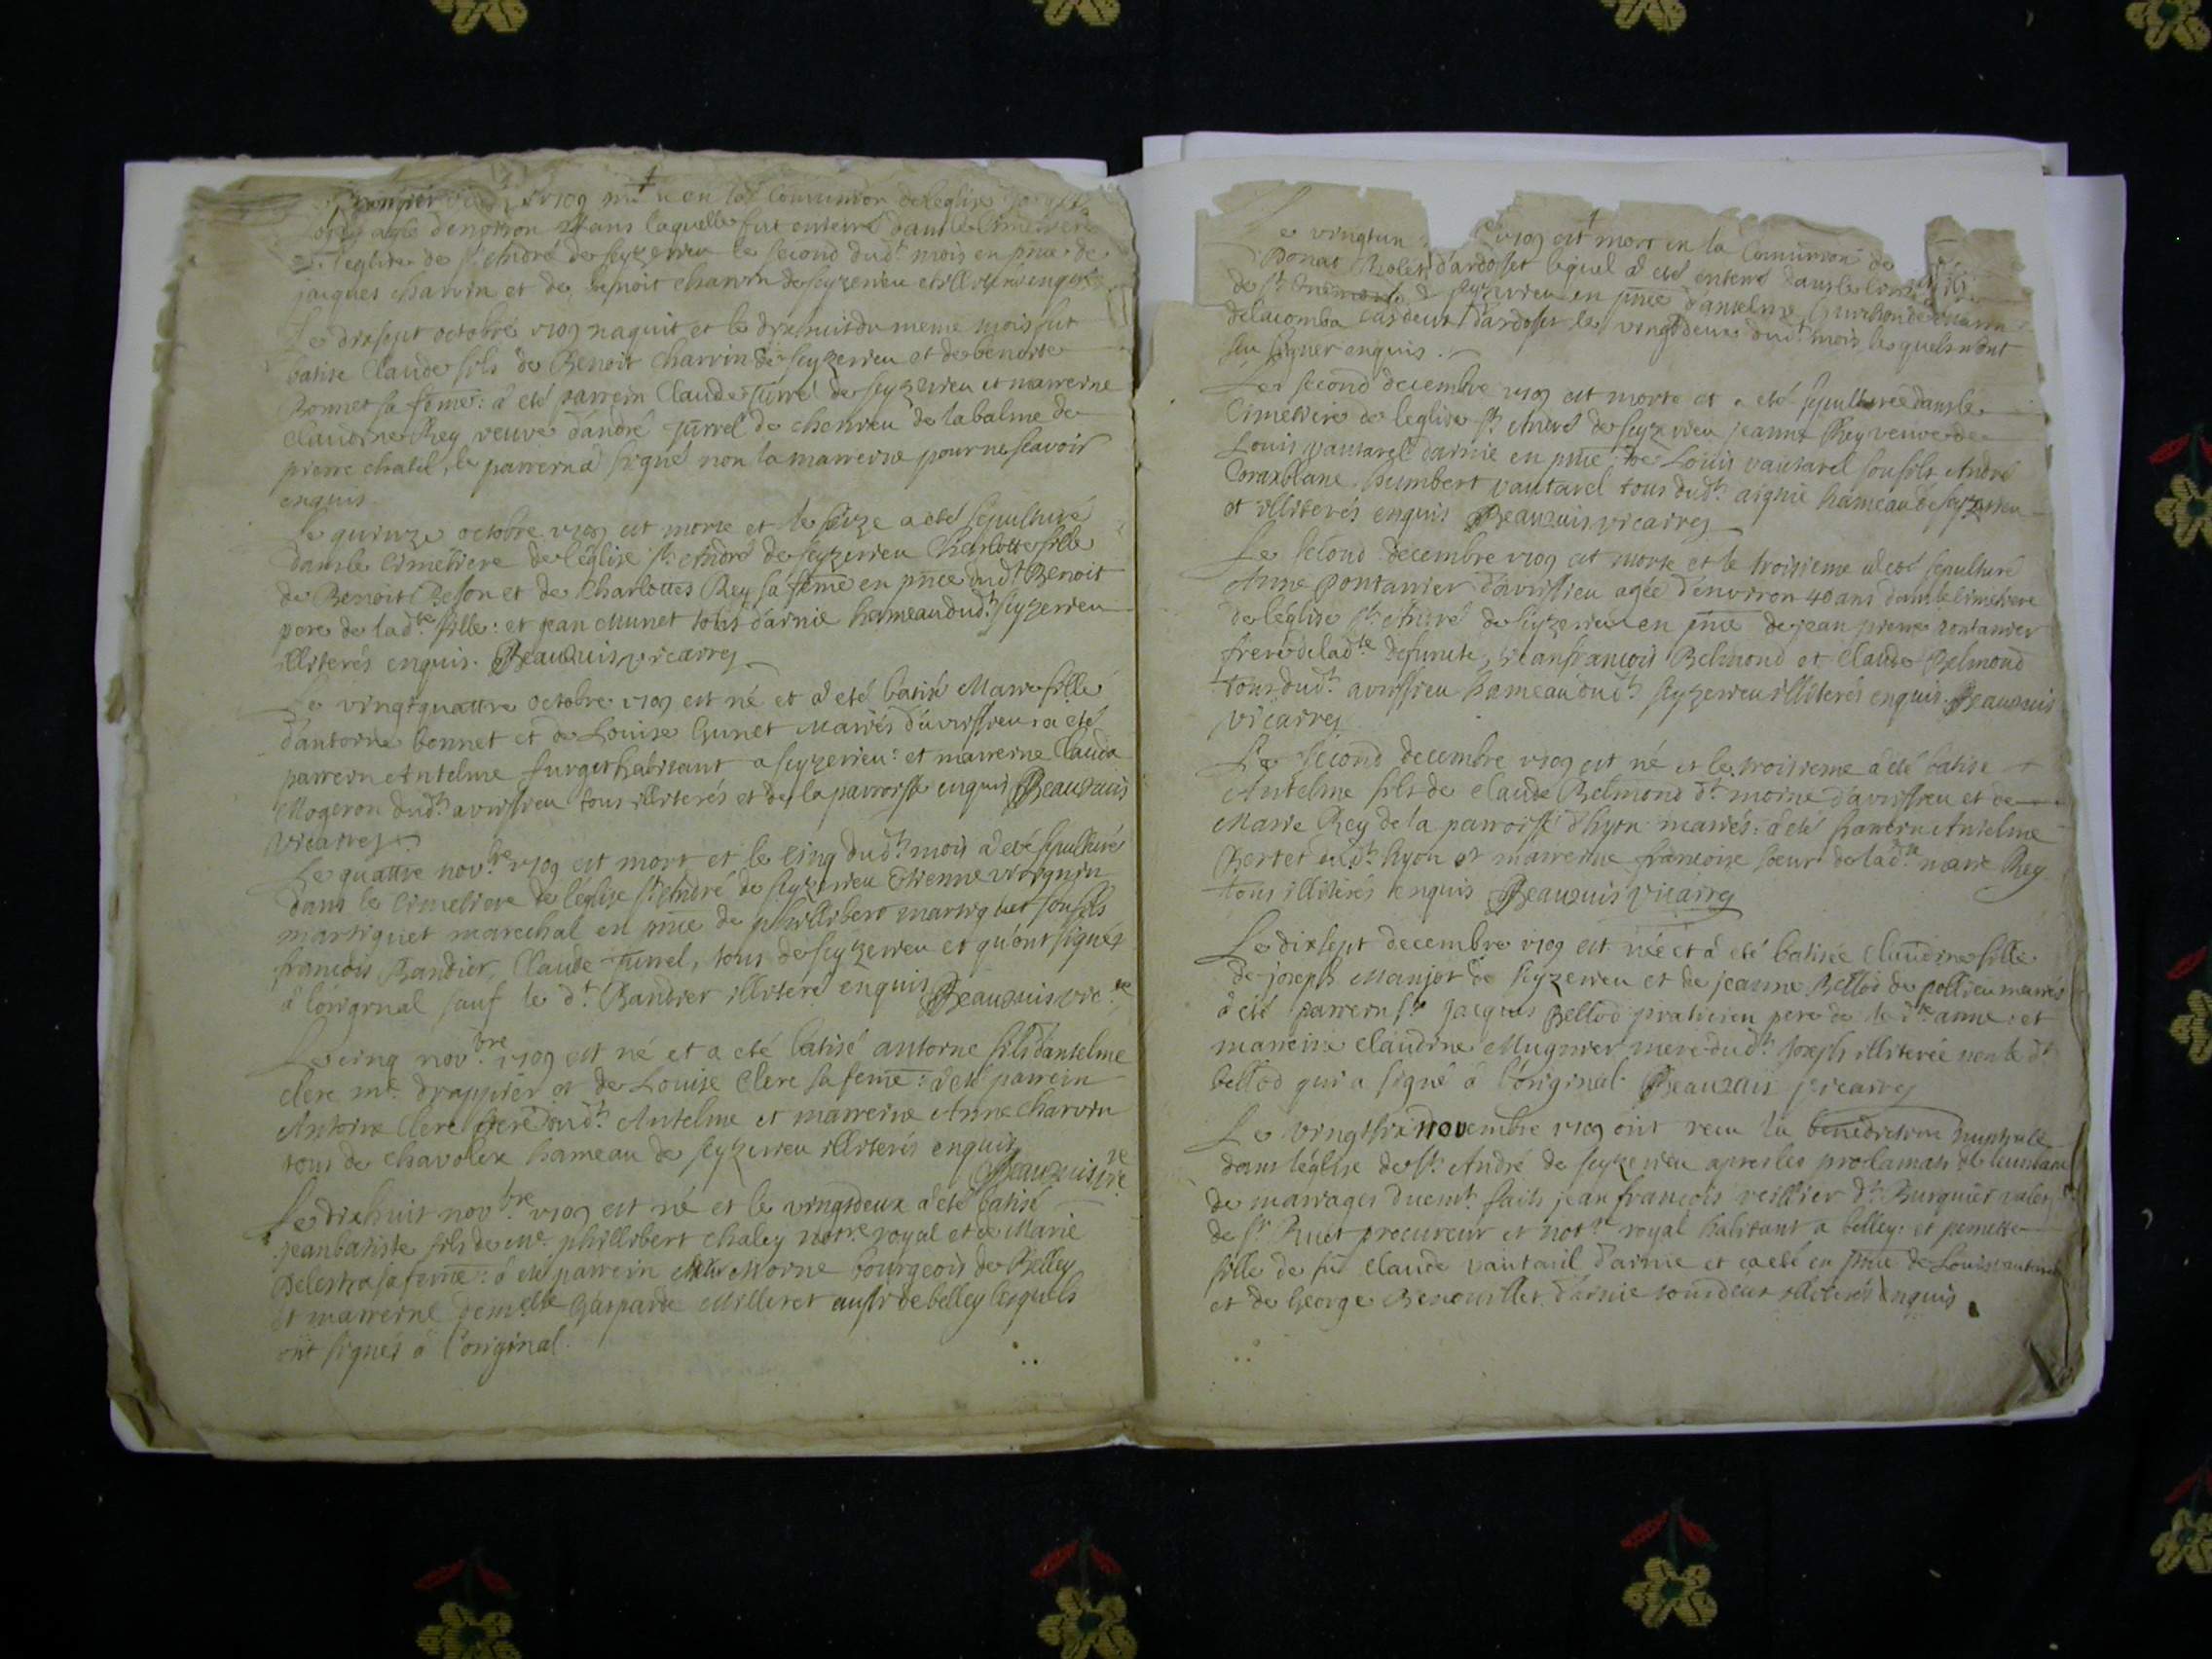 1709 en la Comunion de leglise
agé denviron ans laquelle fut enterré dans le Cimetiere
de leglise de St André de Seyzerieu le second dud.t mois en pnce de
jacques charvin et de benoit charvin de seyzerieu enquis
Le dixsept octobre 1709 naquit et le dixhuit du meme mois fut
batisé Claude fils de Benoit Charvin de seyzerieu et de benoite
Bonnet sa feme: a eté parrein Claude Jurrel de seyzerieu et marreine
Claudine Rey veuve d'andré jurrel de chenvieu de la balme de
pierre chatel, le parrein a signé non la marreine pour ne scavoir
enquis
Le quinze octobre 1709 est morte et le seize a eté sepulturé
dans le cimetiere de l'église St. André de seyzerieu Charlotte fille
de Benoit Beson et de Charlottes Rey sa feme en pnce dud.t Benoit
pere de lad.te fille: et jean Munet tous d'arnie hameau dud.t seyzerieu
illiterés enquis. Beauzuis vicaires
Le vingtquattre octobre 1709 est né et a eté batisé Marie fille
d'antoine bonnet et de Louise Gunet Mariés d'avrissieu: a eté
parrein Antelme furget habitant a seyzerieu: et marreine Clauda
Mogeron dud.t avrissieu tous illiterés et de la parroisse enquis Beauzuis
vicaires
Le quattre nov.bre 1709 est mort et le cinq dud.t mois a eté sepulturé
dans le cimetiere de léglise St André de seyzerieu Etienne
martiquet marechal en pnce de phillibert martiquet son fils
françois Bandier, Claude Jurrel, tous de seyzerieu et qu'ont signés
à l'original sauf le d.t Bandier illiteré enquis Beauzuis vic.re
Le cinq nov.bre 1709 est né et a eté batisé antoine fils d'antelme
clere m.e drappier et de Louise Clere sa feme: a eté parrein
Antoine Clere frere dud.t Antelme et marreine Anne Charvin
tous de Chavolex hameau de seyzerieu illiterés enquis
Beauzuis vic.re
Le dixhuit nov.bre 1709 est né et le vingtdeux a eté batisé
jeanbatiste fils de me. phillibert chaley nott.re royal et de Marie
Delestra sa feme: a eté parrein Morne bourgeois de Belley
et marreine dem.elle Gasparde Milleret aussi de belley lesquels
ont signés à l'original
Le vingtun 1709 est mort en la Comunion de
Donat Rolet d'ardosset lequel a eté enterré dans le
de St. de seyzerieu en pnce d'antelme
delacomba cardeur d'ardosset le vingtdeux dud.t mois lesquels n'ont
seu signer enquis.
Le second decembre 1709 est morte et a eté sepulturée dans le
Cimetiere de leglise St. André de seyzerieu jeanne Rey veuve de
Louis vautarel d'arnie en pnce de Louis vautarel son fils André
Coraxblanc. humbert vautarel tous dud.t hameau de seyzerieu
et illiterés enquis Beauzuis vicaires
Le second decembre 1709 est morte et le troisieme a eté sepulturé
Anne pontanier d'avrissieu agée d'environ 40 ans dans le cimetiere
de léglise St. André de seyzerieu en pnce de jean pierre pontanier
frere de lad.te defunte, jeanfrançois Belmond et Claude Belmond
tous dud.t avrissieu hameau dud.t seyzerieu illiterés enquis. Beauzuis
vicaires
Le second decembre 1709 est né et le troisieme a eté batisé
Antelme fils de Claude Belmond d.t moine d'avrissieu et de
Marie Rey de la parroisse d'hyon mariés: a eté parrein Antelme
Bertet dud.t hyon et marreine françoise soeur de lad.te marie Rey
tous illiterés enquis Beauzuis vicaires
Le dixsept decembre 1709 est née et a eté batisée Claudine fille
de joseph Manjot de seyzerieu et de jeanne Bellod de pollieu mariés
a eté parrein Sr. jacques Bellod praticien pere de la d.te anne: et
marreine Claudine Mugnier mere dud.t joseph illiterée non le d.t
bellod qui a signé à l'original. Beauzuis vicaires
Le vingtsix novembre 1709 ont receu la benediction nuptiale
dans léglise de St. André de seyzerieu apres les proclamats de leur bans
de mariages duemt. faits jean françois veillier d.t Burquier valet
de Sr. Ruet procureur et nott.re royal habitant a belley: et pernette
fille de fu Claude vautaril d'arnie et a eté en pnce de Louis
et de George Benouillet d'arnie tous deux illiterés enquis.